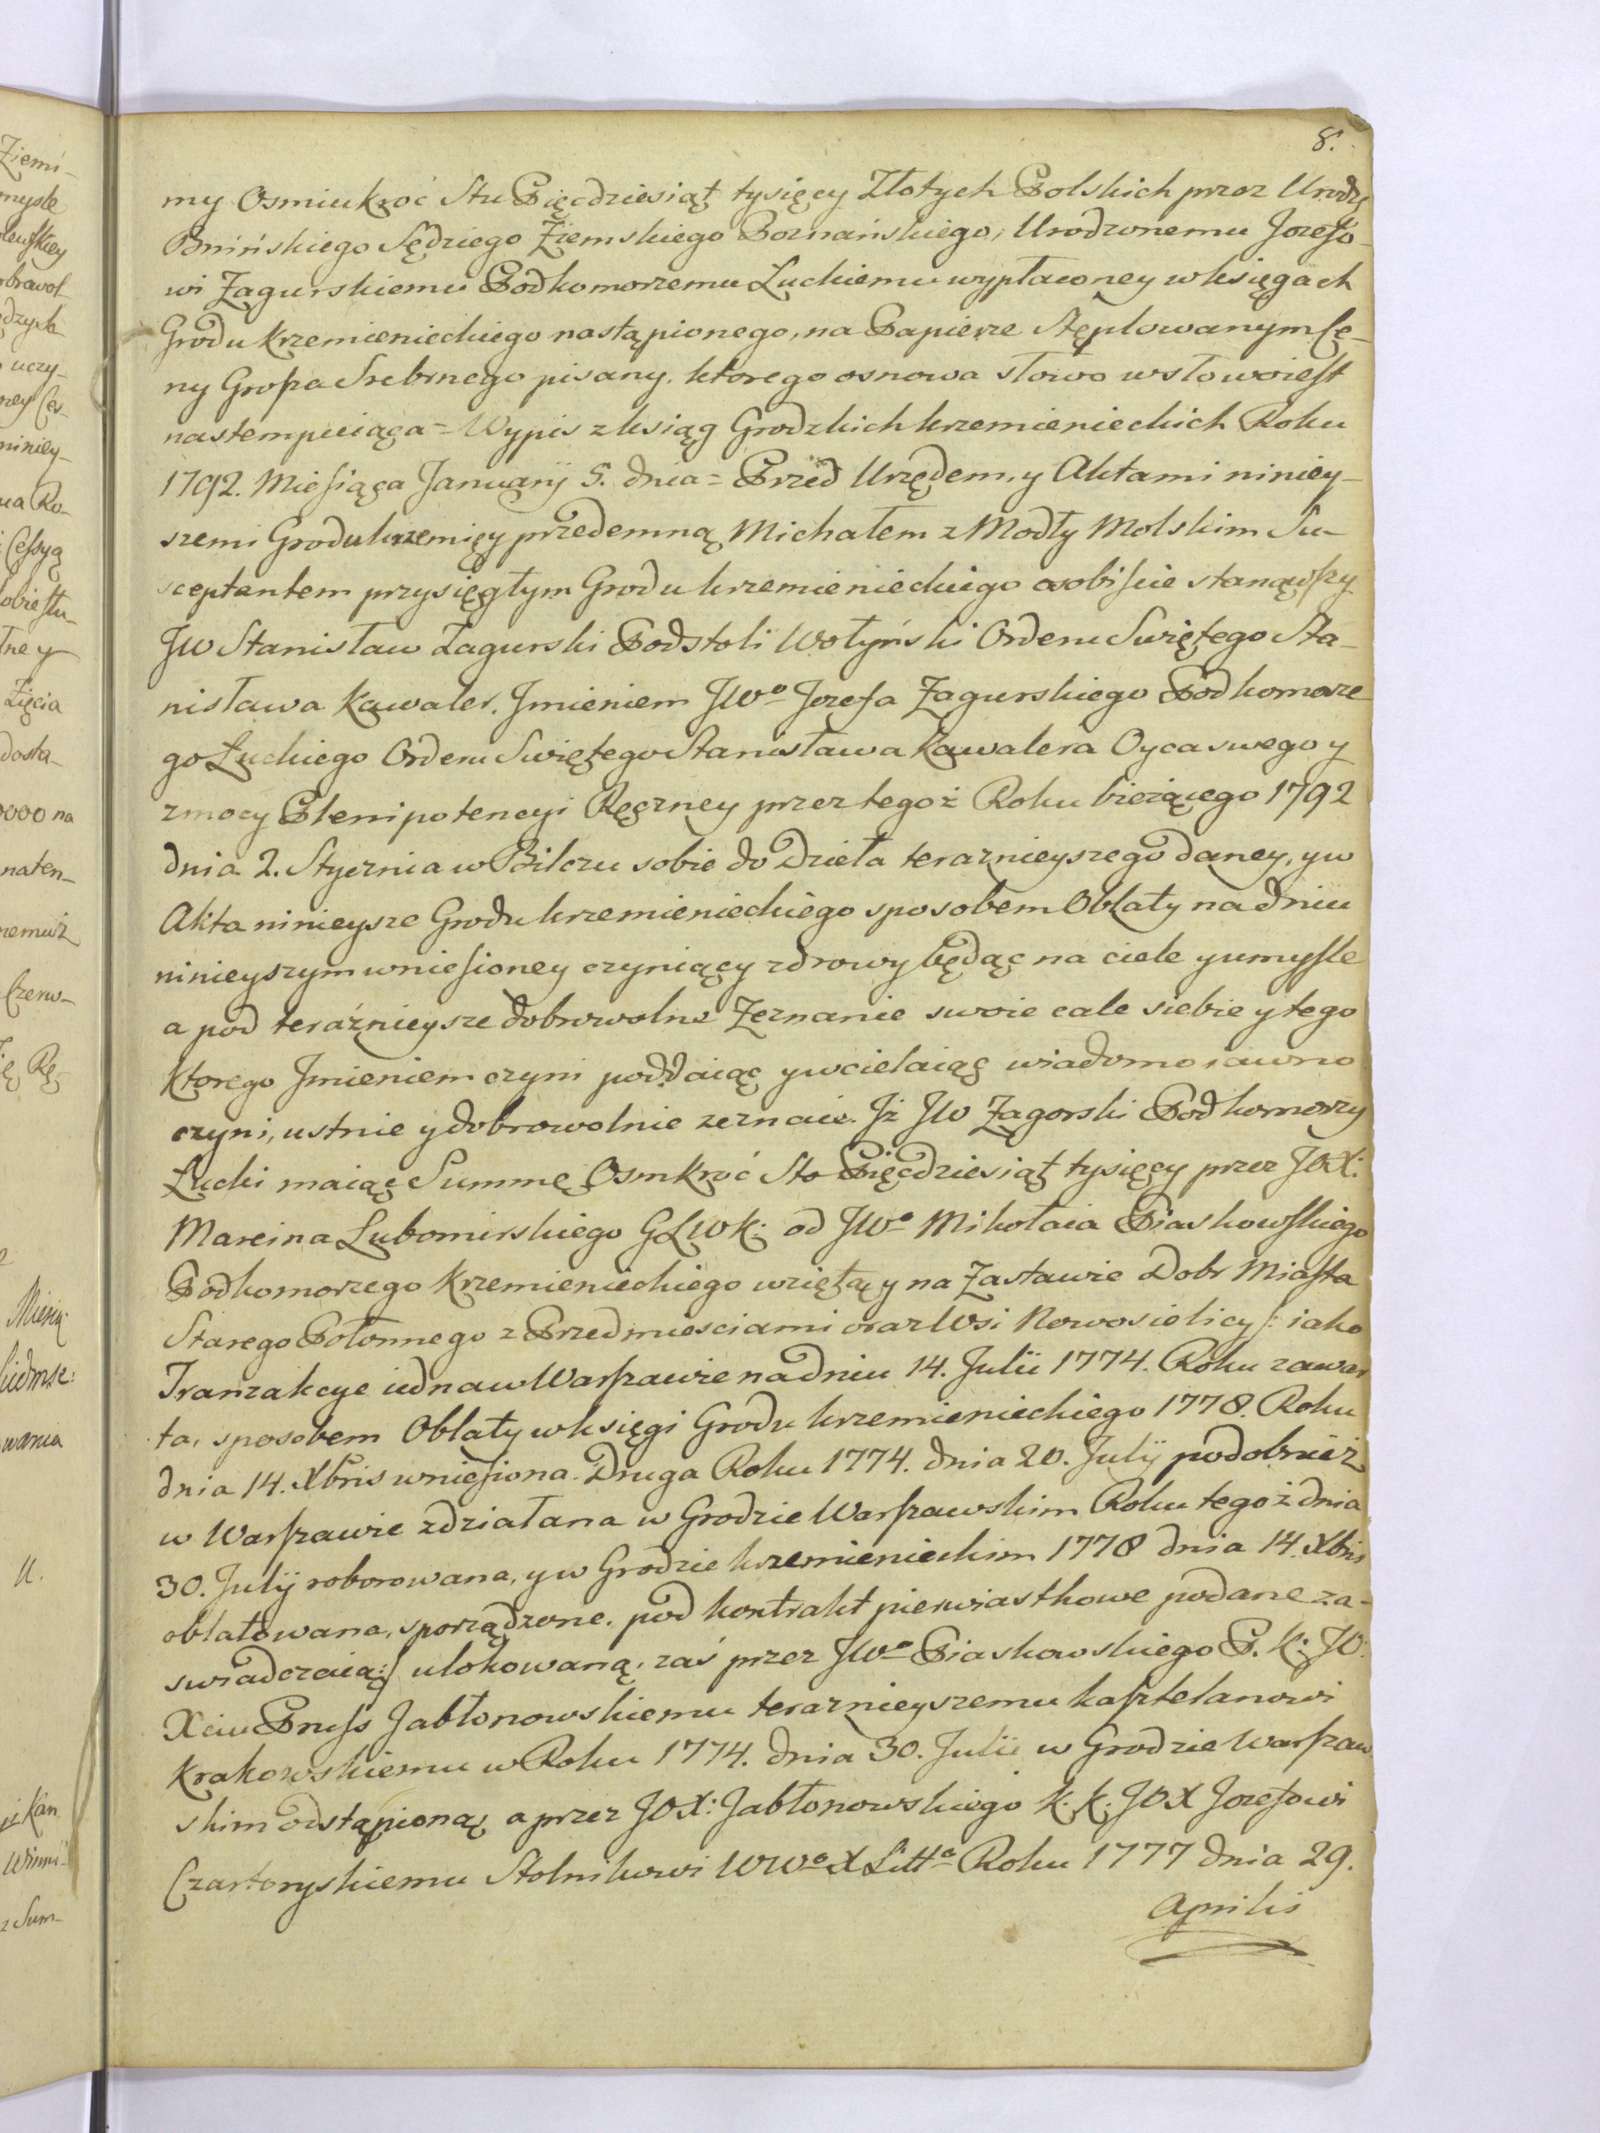 8.
my Osmiukroć Stu Pięcdziesiąt tysięcy Złotych Polskich przez Urodz
Bnińskiego Sędziego Ziemskiego Poznańskiego, Urodzonemu Jozefo-
wi Zagurskiemu Podkomorzemu Łuckiemu wypłaconey w księgach
Grodu Krzemienieckiego nastąpionego, na Papierze Stęplowanym Ce-
ny Grosza Srebrnego pisany, ktorego osnowa słowo w słowo iest
nastempuiąca = Wypis z ksiąg Grodzkich krzemienieckich Roku
1792. Miesiąca Januarij 5. dnia = Przed Urzędem, y Aktami niniey-
szemi Grodu krzemięy przedemną Michałem z Modły Molskim Su-
sceptentem przysięgłym Grodu krzemienieckiego osobiście stanąwszy
JW Stanisław Zagurski Podstoli Wołyński Orderu Swiętego Sta-
nisława Kawaler, Jmieniem JWo Jozefa Zagurskiego Podkomorze
go Łuckiego Orderu Swiętego Stanisława Kawalera Oyca swego y
z mocy Plenipotencyi Ręczney przez tegoż Roku bieżącego 1792
dnia 2. Stycznia w Bilczu sobie do Dzieła teraznieyszego daney, y w
Akta ninieysze Grodu krzemienieckiego sposobem Oblaty na dniu
ninieyszym wniesioney czyniący zdrowy będąc na ciele y umysle
a pod teraźnieysze dobrowolne Zeznanie swoie cale siebie y tego
Ktorego Jmieniem czyni poddaiąc y wcielaiąc wiadomo iawno
czyni, ustnie y dobrowolnie zeznaie. Jż JW Zagorski Podkomorzy
Łucki maiąc Summę Osmkroć Sto Pięcdziesiąt tysięcy przez JOX:
Marcina Lubomirskiego GLWK: od JWo Mikołaia Piaskowskiego
Podkomorzego Krzemienieckiego wziętą y na Zastawie Dobr Miasta
Starego Połonnego z Przedmiesciami oraz Wsi Nowosielicy /: iako
Tranzakcye iedna w Warszawie na dniu 14. Julii 1774. Roku zawar
ta, sposobem Oblaty w księgi Grodu krzemienieckiego 1778. Roku
dnia 14. Xbris wniesiona. Druga Roku 1774. dnia 20. Julij podobnież
w Warszawie zdziałana w Grodzie Warszawskim Roku tegoż dnia
30. Julij roborowana, y w Grodzie krzemienieckim 1778 dnia 14. Xbris
oblatowana, sporządzone, pod kontrakt pierwiastkowe podane za-
swiadczaią :/ ulokowaną, zaś przez JWo Piaskowskiego P. K: JO:
Xciu Pruss Jabłonowskiemu teraznieyszemu kasztelanowi
Krakowskiemu w Roku 1774. dnia 30. Julii w Grodzie Warszaw
skim odstąpioną a przez JOX: Jabłonowskiego K. K: JOX Jozefowi
Czartoryskiemu Stolnikowi WWo X Litto Roku 1777 dnia 29.
Aprilis